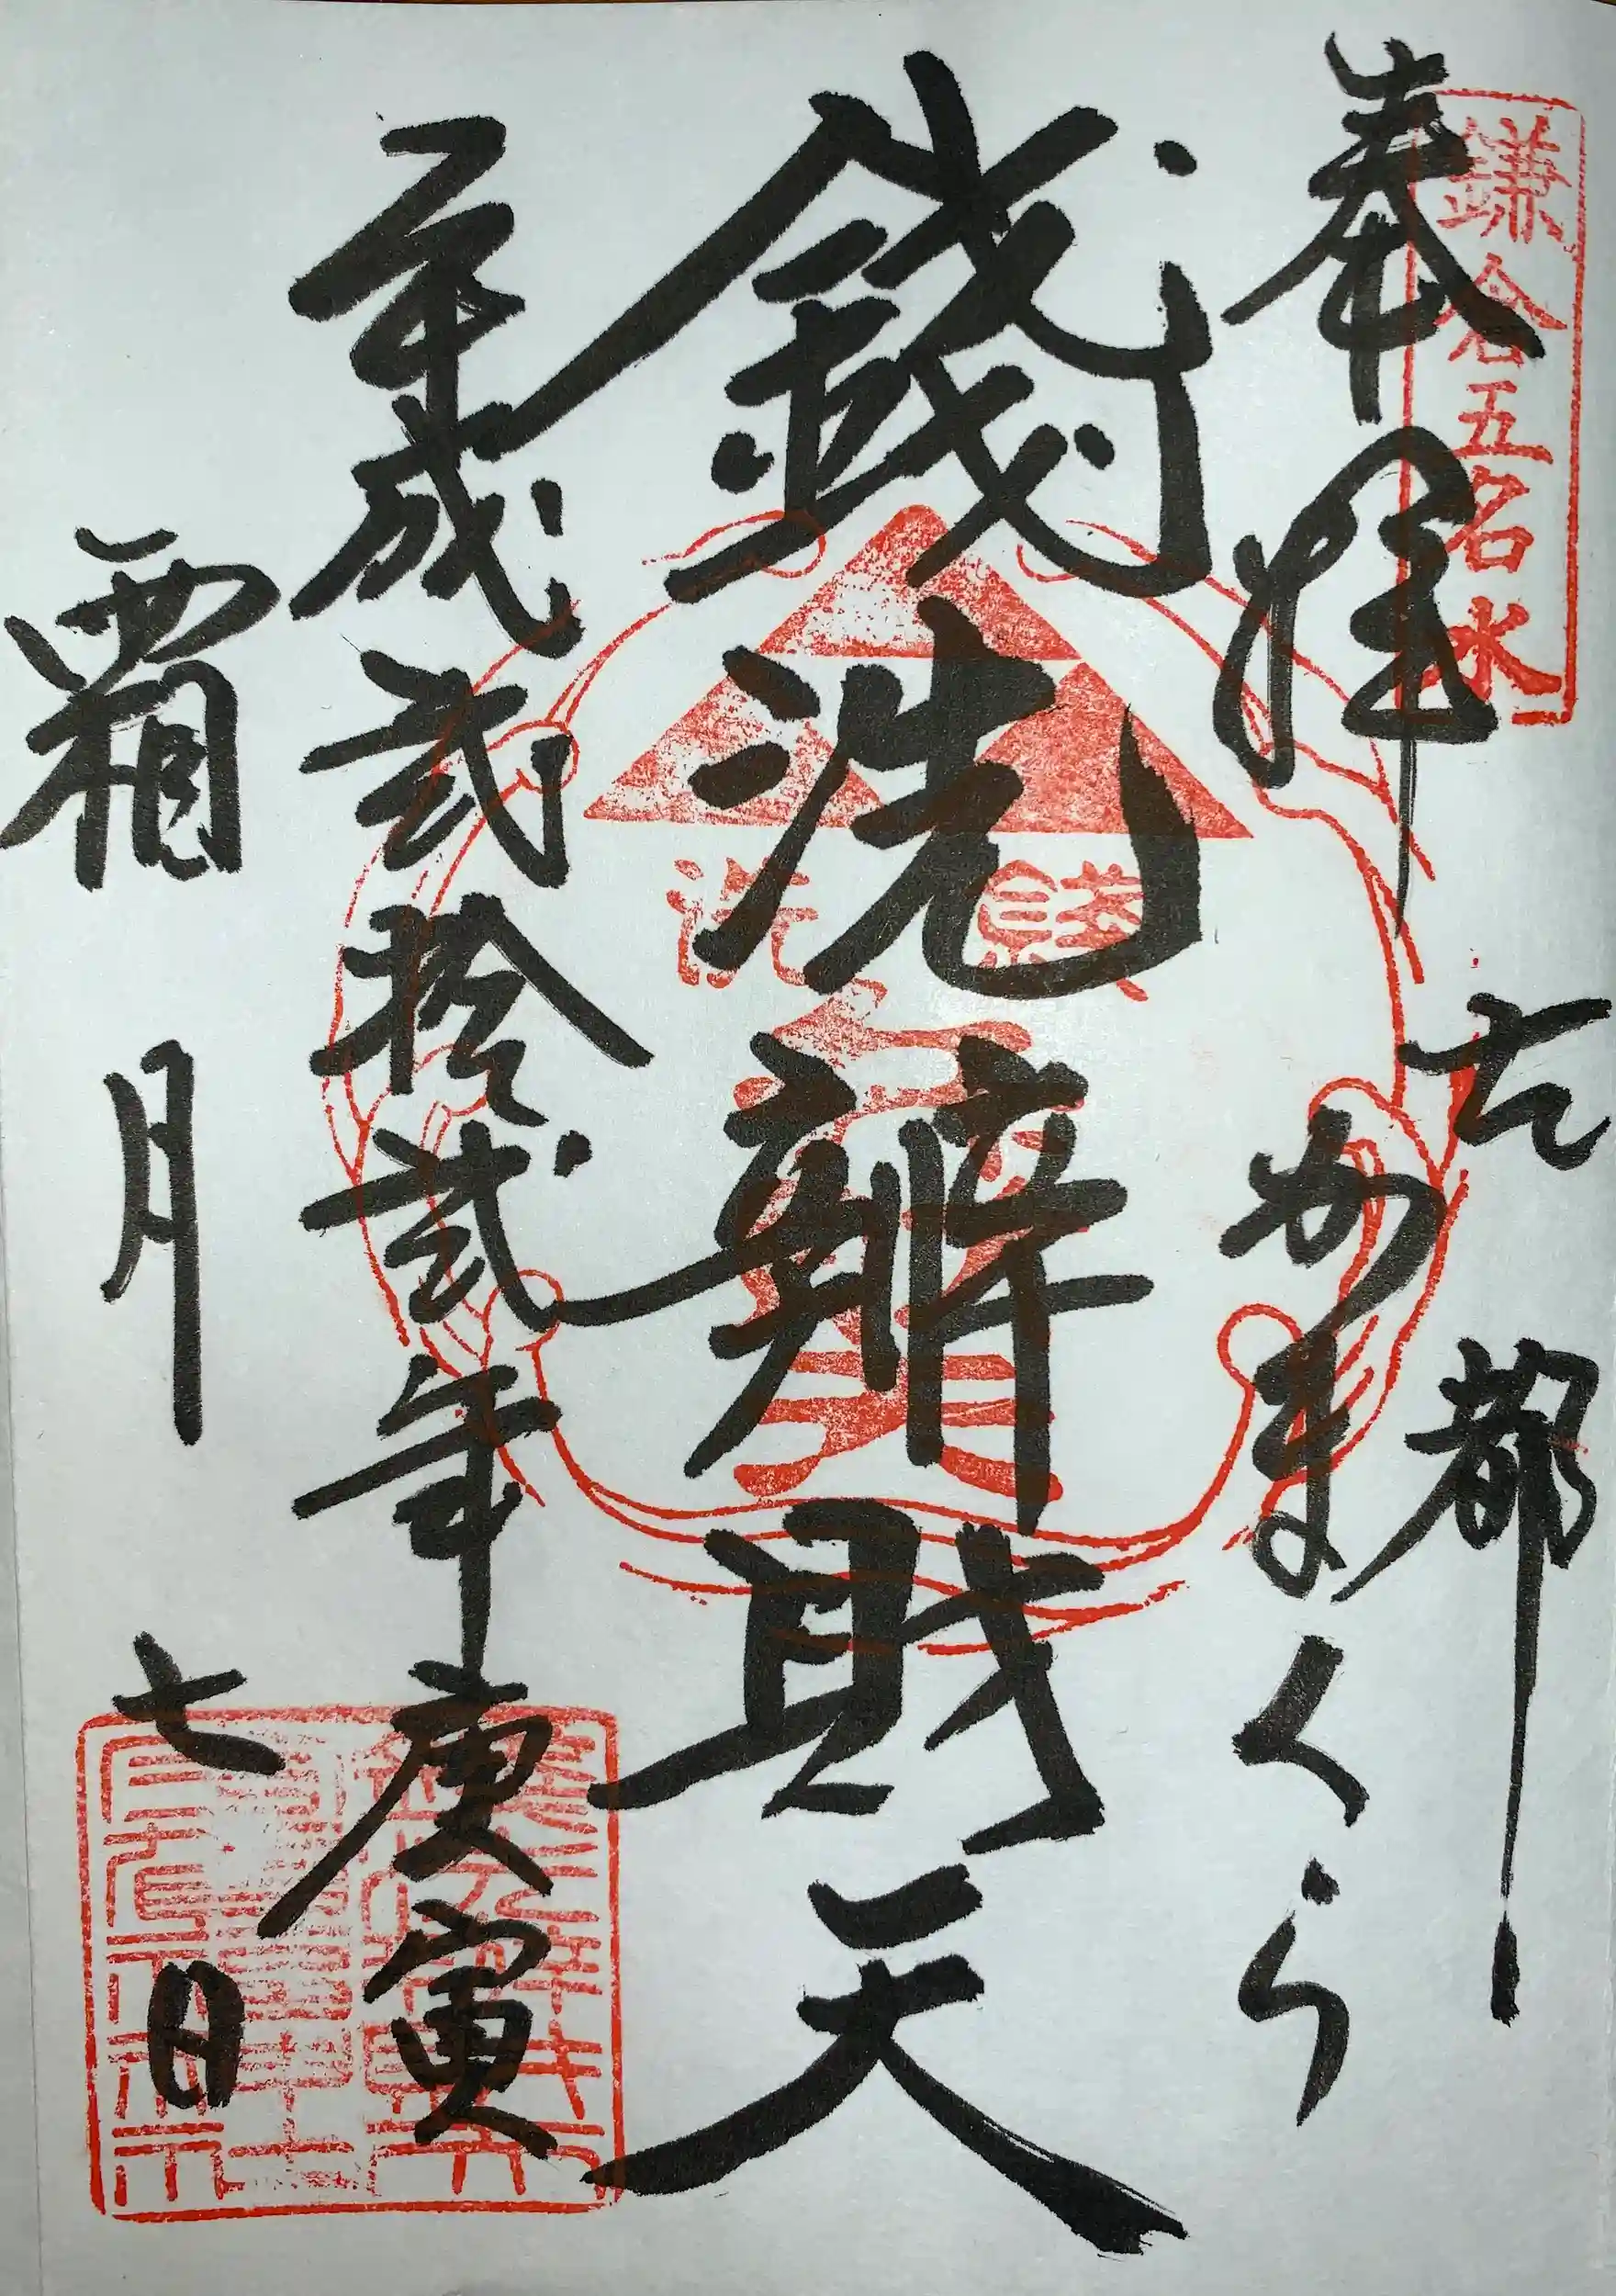 鎌倉五名水
奉拝
古都
かまくら
銭洗辨財天
銭洗
平成弐拾弐年庚寅
霜月七日